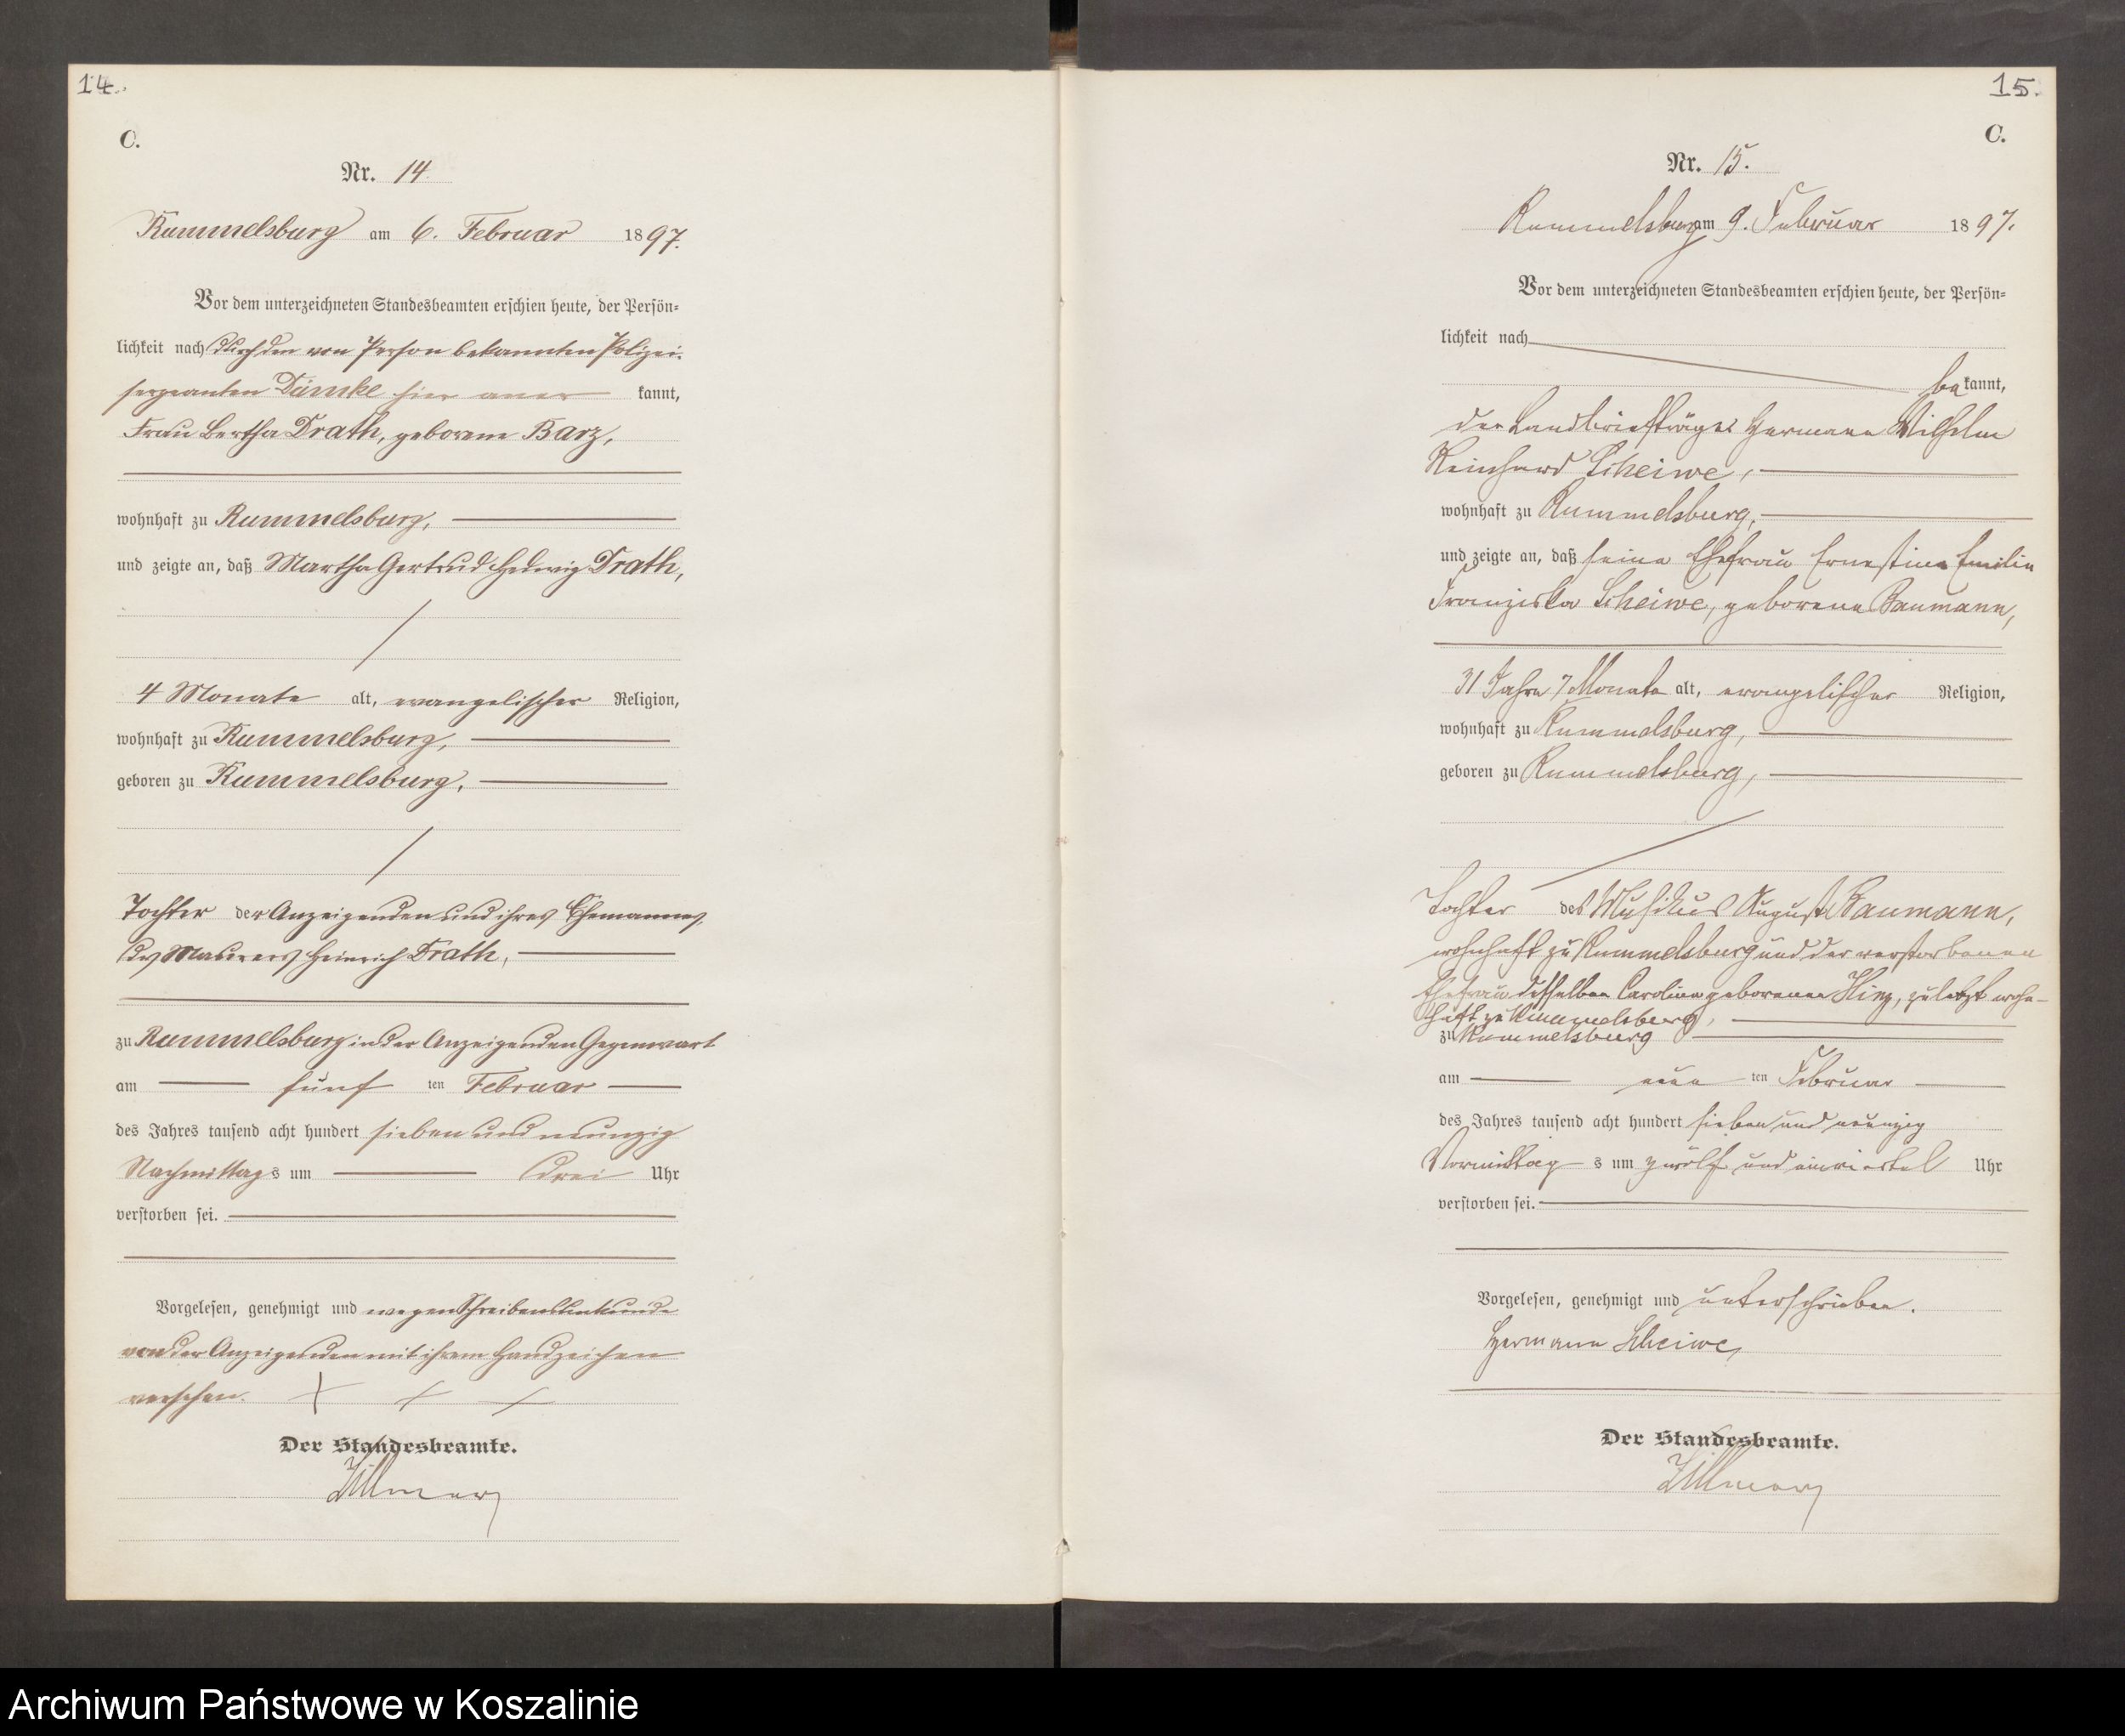 14.
C.
Nr. 14
Rummelsburg am 6. Februar 1897.
Vor dem unterzeichneten Standesbeamten erschien heute, der Persön-
lichkeit nach durch den von Person bekannten Polizei-
sergeanten Dümke hier aner kannt,
Frau Bertha Drath, geborene Barz,
wohnhaft zu Rummelsburg,
und zeigte an, daß Martha Gertrud Hedwig Drath,
4 Monate alt, evangelischer Religion,
wohnhaft zu Rummelsburg,
geboren zu Rummelsburg,
Tochter der Anzeigenden und ihres Ehemannes,
des Maurers Heinrich Drath,
zu Rummelsburg in der Anzeigenden Gegenwart
am fünf ten Februar
des Jahres tausend acht hundert sieben und neunzig
Nachmittags um drei Uhr
verstorben sei.
Vorgelesen, genehmigt und wegen Schreibensunkunde
von der Anzeigenden mit ihrem Handzeichen
versehen. + + +
Der Standesbeamte.
15.
C.
Nr. 15.
Rummelsburg am 9. Februar 1897.
Vor dem unterzeichneten Standesbeamten erschien heute, der Persön-
lichkeit nach
be kannt,
der Landbriefträger Hermann Wilhelm
Reinhard Scheiwe,
wohnhaft zu Rummelsburg,
und zeigte an, daß seine Ehefrau Ernestine Emilie
Franziska Scheiwe, geborene Baumann,
31 Jahre 7 Monate alt, evangelischer Religion,
wohnhaft zu Rummelsburg,
geboren zu Rummelsburg,
Tochter des Musikus August Baumann,
wohnhaft zu Rummelsburg und der verstorbenen
Ehefrau desselben Caroline geborenen Hinz, zuletzt wohn-
haft zu Rummelsburg,
zu Rummelsburg
am neun ten Februar
des Jahres tausend acht hundert sieben und neunzig
Vormittag s um zwölf und einviertel Uhr
verstorben sei.
Vorgelesen, genehmigt und unterschrieben.
Hermann Scheiwe,
Der Standesbeamte.
Archiwum Państwowe w Koszalinie